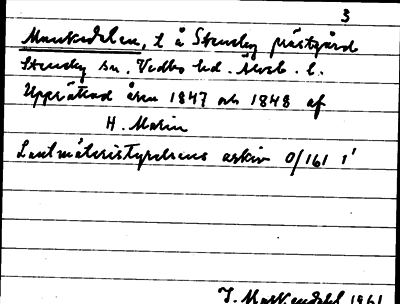 3
Munkedalen, t å Steneby prästgård
Steneby sn. Vedbo hd. Älvsb. l.
Upprättad åren 1847 och 1848 af
H. Marin
Lantmäteristyrelsens arkiv O/161 1'
J. 1961